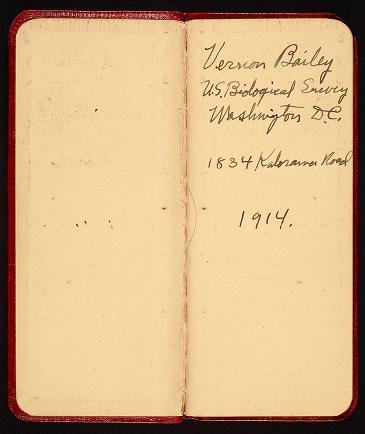 Vernon Bailey
U.S. Biological Survey
Washington D.C.
1834 Kalorama Road
1914.